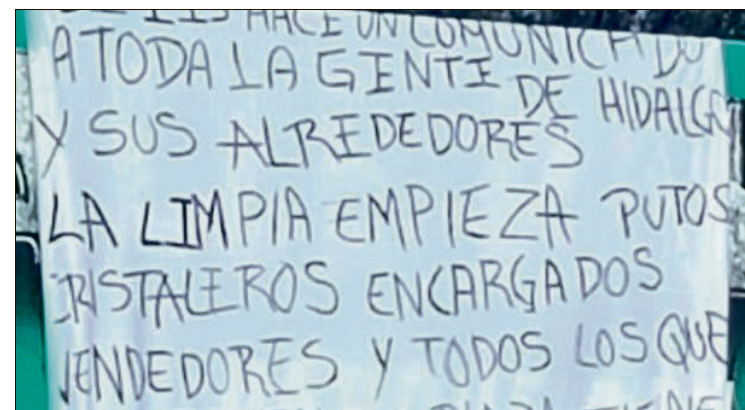 HACE UN COMUNICADO
A TODA LA GENTE DE HIDALGO
Y SUS ALREDEDORES
LA LIMPIA EMPIEZA PUTOS
CRISTALEROS ENCARGADOS
VENDEDORES Y TODOS LOS QUE